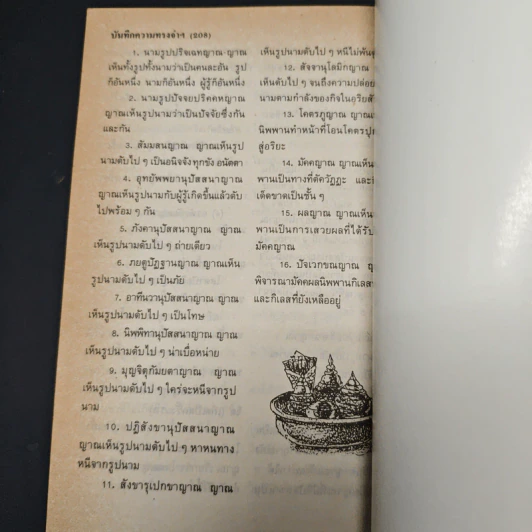 บันทึกความทรงจำฯ (208)
1. นามรูปปริจเฉทญาณ ญาณ
เห็นทั้งรูปทั้งนามว่าเป็นคนละอัน รูป
ก็อันหนึ่ง นามก็อันหนึ่ง ผู้รู้ก็อันหนึ่ง
2. นามรูปปัจจยปริคคหญาณ
ญาณเห็นรูปนามว่าเป็นปัจจัยซึ่งกัน
และกัน
3. สัมมสนญาณ ญาณเห็นรูป
นามดับไป ๆ เป็นอนิจจังทุกขัง อนัตตา
4. อุทยัพพยานุปัสสนาญาณ
ญาณเห็นรูปนามกับผู้รู้เกิดขึ้นแล้วดับ
ไปพร้อม ๆ กัน
5. ภังคานุปัสสนาญาณ ญาณ
เห็นรูปนามดับไป ๆ ถ่ายเดียว
6. ภยตูปัฏฐานญาณ ญาณเห็น
รูปนามดับไป ๆ เป็นภัย
7. อาทีนวานุปัสสนาญาณ ญาณ
เห็นรูปนามดับไป ๆ เป็นโทษ
8. นิพพิทานุปัสสนาญาณ ญาณ
เห็นรูปนามดับไป ๆ น่าเบื่อหน่าย
9. มุญจิตุกัมยตาญาณ ญาณ
เห็นรูปนามดับไป ๆ ใคร่จะหนีจากรูป
นาม
10. ปฏิสังขานุปัสสนาญาณ
ญาณเห็นรูปนามดับไป ๆ หาหนทาง
หนีจากรูปนาม
11. สังขารุเปกขาญาณ ญาณ
เห็นรูปนามดับไป ๆ หนีไม่พ้น
12. สัจจานุโลมิกญาณ
เห็นดับไป ๆ จนถึงความปล่อย
นามตามกำลังของกิจในอริยสั
13. โคตรภูญาณ ญาณ
นิพพานทำหน้าที่โอนโคตรปุ
สู่อริยะ
14. มัคคญาณ ญาณเห็น
พานเป็นทางที่ตัดวัฏฏะ
เด็ดขาดเป็นชั้น ๆ
15. ผลญาณ ญาณเห็น
พานเป็นการเสวยผลที่ได้รับ
มัคคญาณ
16. ปัจเวกขณญาณ
พิจารณามัคคผลนิพพานกิเลส
และกิเลสที่ยังเหลืออยู่